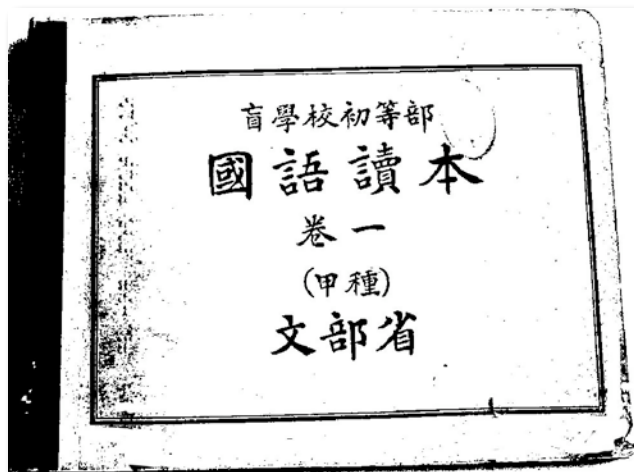 盲學校初等部
國語讀本
卷一
(甲種)
文部省